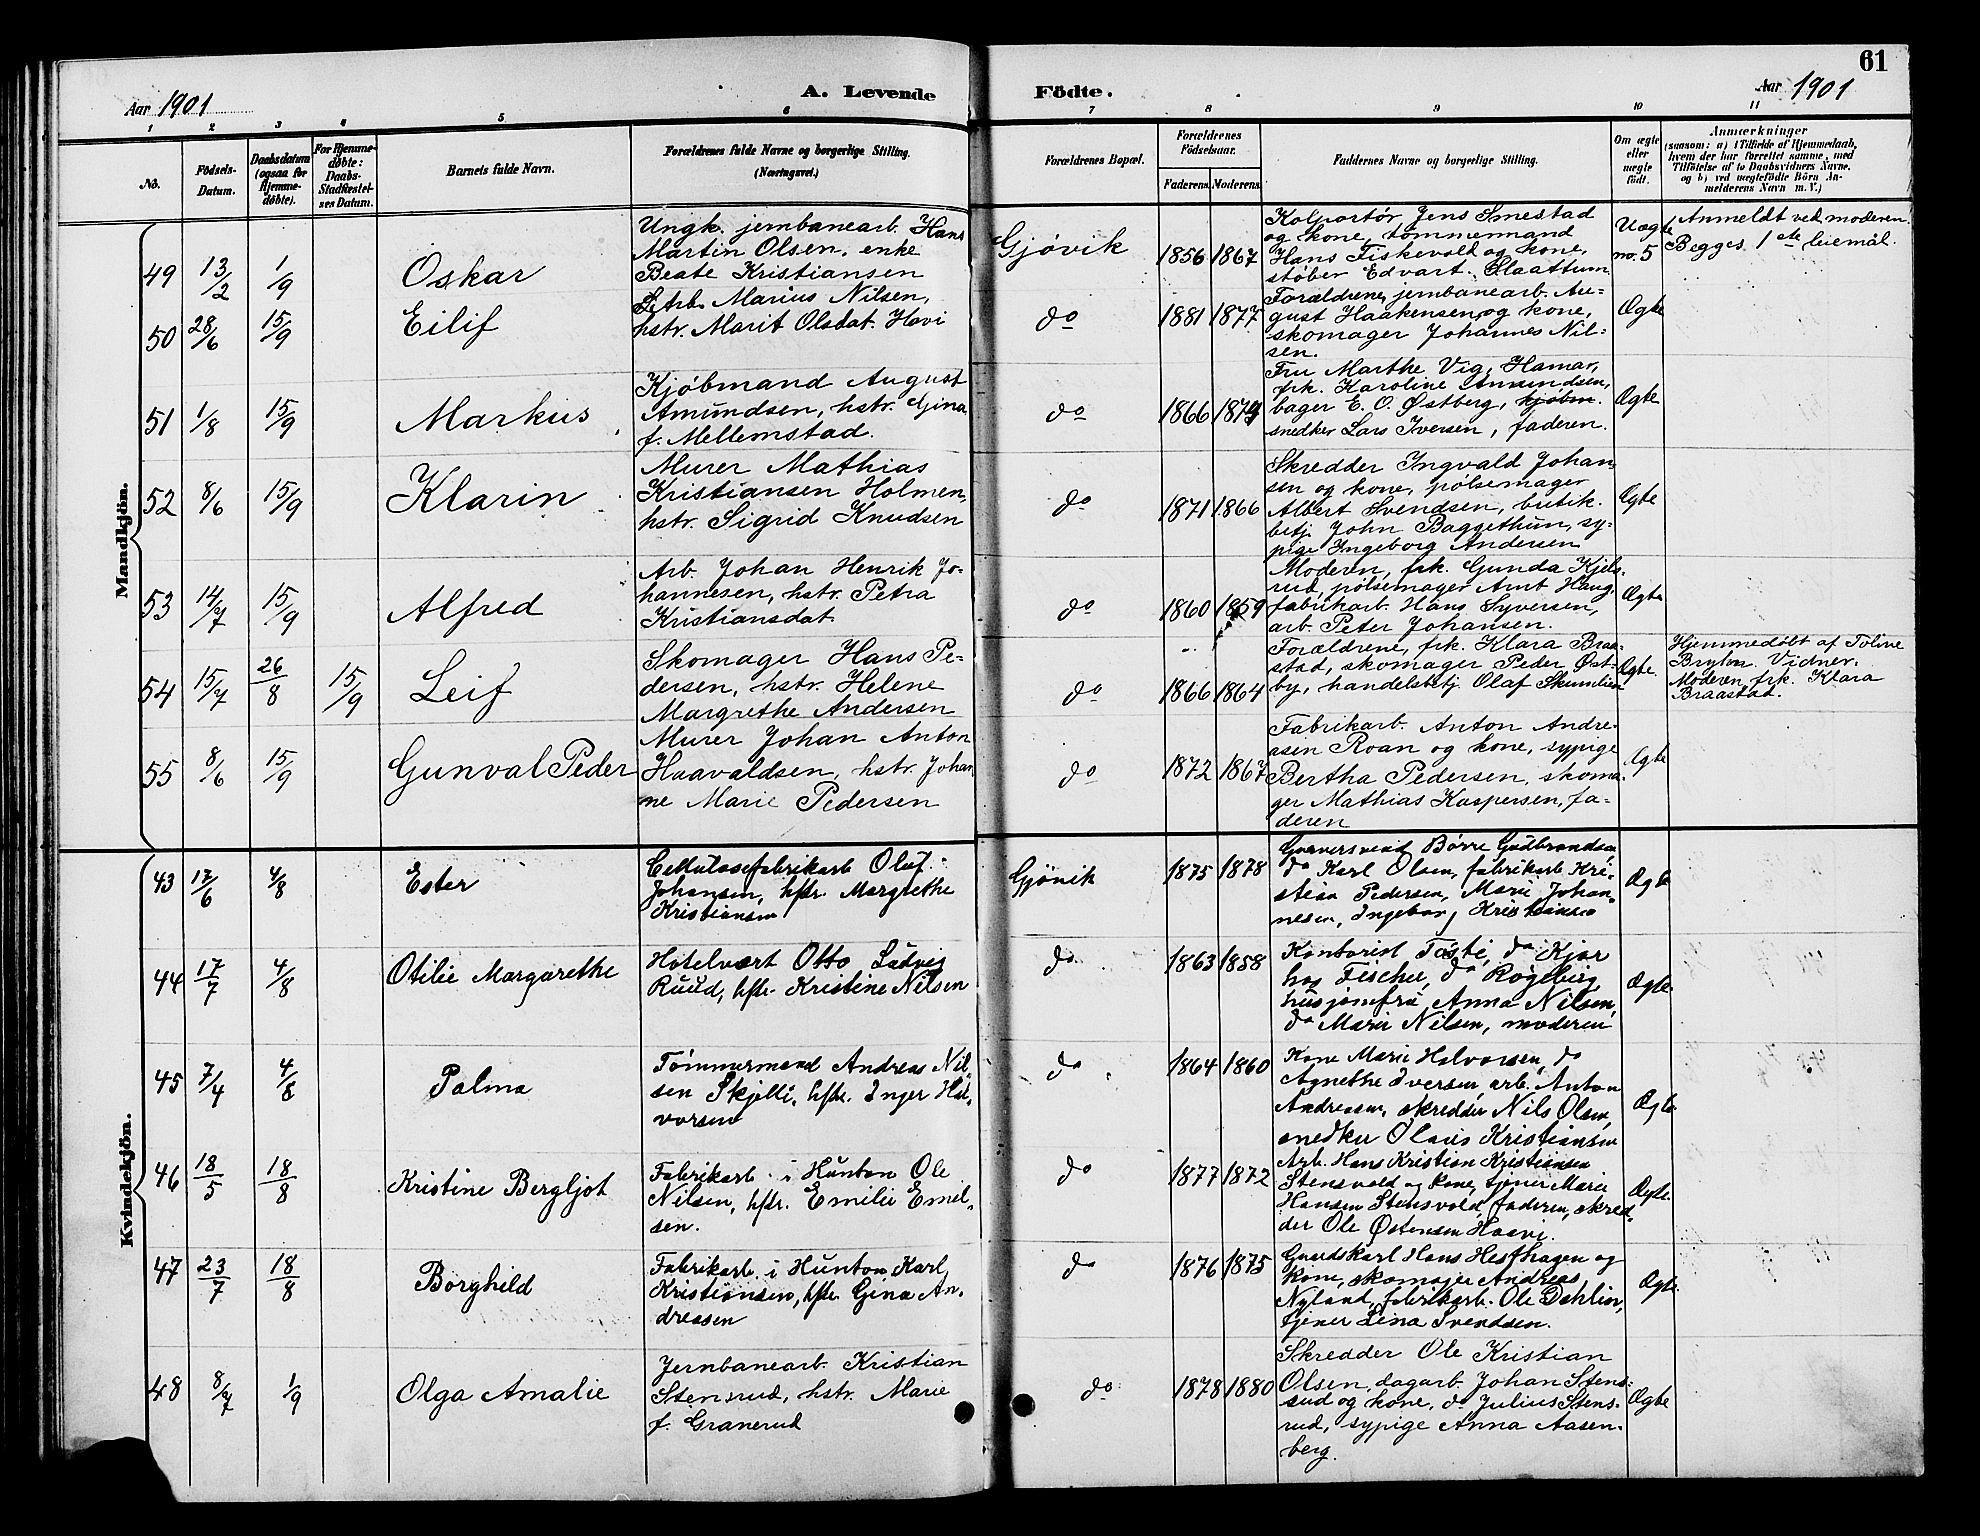 61
Aar 1901
A. Levende Födte.
Aar 1901
1 2 3 4 5 6 7 8 9 10 11
No.
Födsels-Datum.
Daabsdatum (ogsaa for Hjemme-døbte).
For Hjemme-døbte: Daabs-Stadfæstel-ses Datum.
Barnets fulde Navn.
Forældrenes fulde Navne og borgerlige Stilling.
(Næringsvei.)
Forældrenes Bopæl.
Forældrenes Födselsaar.
Faderens. Moderens.
Faddernes Navne og borgerlige Stilling.
Om ægte eller uægte født.
Anmærkninger
(saasom: a) i Tilfælde af Hjemmedaab,
hvem der har forrettet samme, med
Tilføielse af to Daabsvidners Navne,
og b) ved uægtefödte Börn An-
melderens Navn m. V.)
Mandkjön.
49 13/2 1/9 Oskar
Ungk. jernbanearb. Hans
Martin Olsen, enke
Beate Kristiansen
Gjøvik 1856 1867
Kolportör Jens Smestad
og kone, tømmermand
Hans Fiskevold og kone,
støber Edvart Slaattum
Uægte no. 5
Anmeldt ved moderen.
Begges 1ste leiemål.
50 28/6 15/9 Eilif
Arb. Marius Nilsen,
hstr. Marit Olsdat. Hovi
do 1881 1877
Forældrene, jernbanearb. Au-
gust Haakensen og kone,
skomager Johannes Nil-
sen.
Ægte
51 1/8 15/9 Markus
Kjøbmand August
Amundsen, hstr. Gina
f. Mellemstad.
do 1866 1874
Fru Marthe Vig, Hamar,
frk. Karoline Amundsen,
bager E. O. Østberg, kjøbm.
snedker Lars Iversen, faderen.
Ægte
52 8/6 15/9 Klarin
Murer Mathias
Kristiansen Holmen,
hstr. Sigrid Knudsen
do 1871 1866
Skredder Ingvald Johan-
sen og kone, pølsemager
Albert Svendsen, butik.
betj. John Baggethun, sy-
pige Ingeborg Andersen
Ægte
53 14/7 15/9 Alfred
Arb. Johan Henrik Jo-
hannesen, hstr. Petra
Kristiansdat.
do 1860 1859
Moderen, frk. Gunda Kjels-
rud, pølsemager Arnt Haug,
fabrikarb. Hans Syversen,
arb. Peter Johansen.
Ægte
54 15/7 26/8 15/9 Leif
Skomager Hans Pe-
dersen, hstr. Helene
Margrethe Andersen
do 1866 1864
Forældrene, frk. Klara Braa-
stad, skomager Peder Øst-
by, handelsbetj. Olaf Skumlien
Ægte.
Hjemmedøbt af Toline
Vidner:
Moderen, frk. Klara
Braastad.
55 8/6 15/9 Gunval Peder
Murer Johan Anton
Haavaldsen, hstr. Johan
ne Marie Pedersen
do 1872 1867
Fabrikarb. Anton Andre-
asen Roan og kone, sypige
Bertha Pedersen, skoma-
ger Mathias Kaspersen, fa-
deren
Ægte
Kvindekjön.
43 17/6 4/8 Ester
Cellulosefabrikarb Oluf
Johansen, hstr. Margrethe
Kristiansen
Gjøvik 1875 1878
Garversvend Børre Gudbrandsen
do Karl Olsen, fabrikarb Kri-
stian Pedersen, Marie Johan-
nesen, Ingeborg Kristiansen
Ægte
44 17/7 4/8 Otilie Margarethe
Hotelvært Otto Ludvig
Ruud, hstr. Kristine Nilsen
do 1863 1858
Kontorist Tosti, do Kjær
hos Fischer, do Røgeberg,
husjomfru Anna Nilsen,
do Marie Nilsen, moderen
Ægte.
45 7/4 4/8 Palma
Tømmermand Andreas Nil-
sen Skjelli, hstr. Inger Hal-
vorsen
do 1864 1860
Kone Marie Halvorsen, do
Agnethe Iversen arb. Anton
Andreasen, skredder Nils Olsen,
snedker Olaus Kristiansen
Ægte
46 18/5 18/8 Kristine Bergljot
Fabrikarb. i Hunton Ole
Nilsen, hstr. Emilie Emil-
sen.
do 1877 1872
Arb. Hans Kristian Kristiansen
Stensvold og kone, tjener Marie
Hansen Stensvold, faderen, skred-
der Ole Østensen Haavi.
Ægte.
47 23/7 18/8 Borghild
Fabrikarb. i Hunton, Karl
Kristiansen, hstr. Gina An-
dreasen
do 1876 1875
Gaardskarl Hans Hesthagen og
kone, skomager Andreas
Nyland, fabrikarb. Ole Dehlin,
tjener Lina Svendsen.
Ægte.
48 8/7 1/9 Olga Amalie
Jernbanearb. Kristian
Stensrud, hstr. Marie
f. Granerud
do 1878 1880
Skredder Ole Kristian
Olsen, dagarb. Johan Stens-
rud og kone, do Julius Stens-
rud, sypige Anna Aasen-
berg.
Ægte